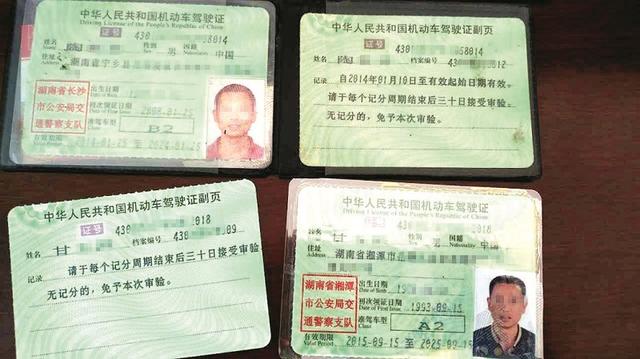 中华人民共和国机动车驾驶证
Driving License of the People's Republic of China
证号 430 8014
姓名
Name
性别 男
国籍 中国
Nationality
住址 湖南省宁乡县
湖南省长沙
市公安局交
通警察支队
初次领证日期 2008-01-25
准驾车型 B2
有效期限 2014-01-25 至 2024-01-25
中华人民共和国机动车驾驶证副页
证号 430 8014
姓名
档案编号 430 812
记录 自2014年01月10日至有效起始日期有效。
请于每个记分周期结束后三十日接受审验。
无记分的，免予本次审验。
中华人民共和国机动车驾驶证副页
证号 430 018
姓名 甘
档案编号 430 09
记录 请于每个记分周期结束后三十日接受审验
无记分的，免予本次审验。
中华人民共和国机动车驾驶证
Driving License of the People's Republic of China
430 018
姓名 甘
Name
性别 男
国籍 中国
Nationality
住址 湖南省湘潭市
湖南省湘潭
市公安局交
通警察支队
出生日期 19
Date of Birth
初次领证日期 1993-09-15
Date of First Issue
准驾车型 A2
Class
有效期限 2015-09-15 至 2025-09-15
Valid Period